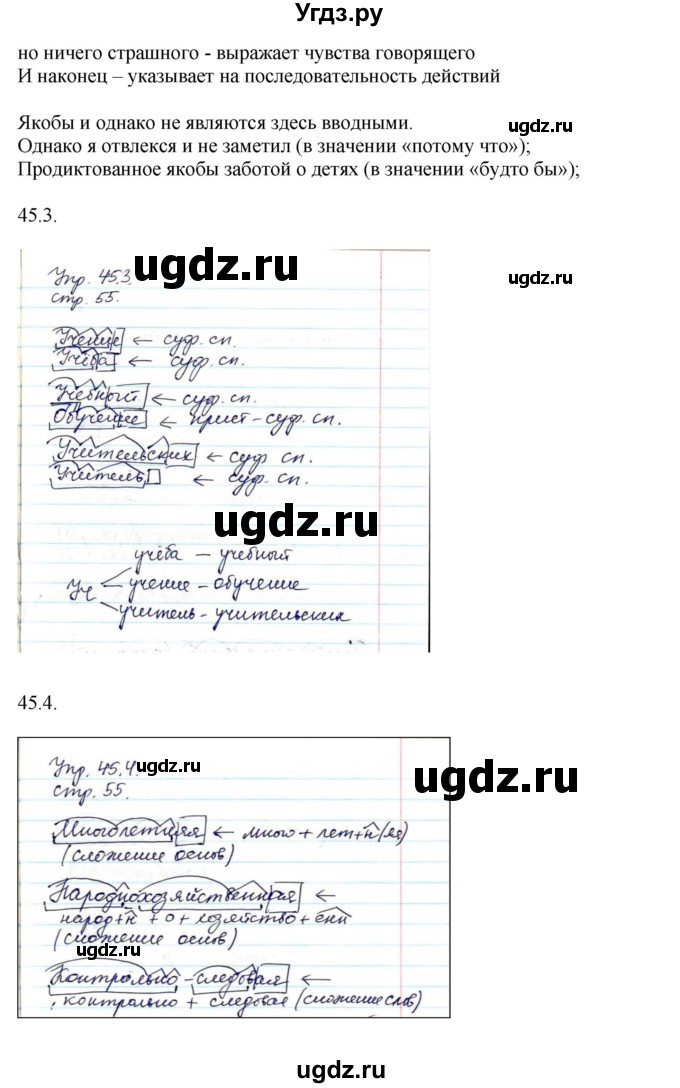 Угдз.ру
но ничего страшного - выражает чувства говорящего
И наконец – указывает на последовательность действий
Якобы и однако не являются здесь вводными.
ugdz.ru
Однако я отвлекся и не заметил (в значении «потому что»);
Продиктованное якобы заботой о детях (в значении «будто бы»);
45.3.
ugdz.ru
ugdz.ru
Упр. 45.3.
стр. 55.
Учение ← суф. сп.
Учёба ← суф. сп.
Учебный ← суф. сп.
Обучение ← прист-суф. сп.
Учительских ← суф сп.
Учитель ← суф. сп.
ugdz.ru
учёба – учебный
Уч учение – обучение
учитель – учительских
45.4.
Упр. 45.4.
ugdz.ru
ugdz.ru
стр. 55.
Многолетняя ← много + лет+н(яя)
(сложение основ)
Народнохозяйственная ←
народ+н + о + хозяйство + енн
(сложение основ)
Контрольно-следовая ←
контрольно + следовая (сложение слов)
ugdz.ru